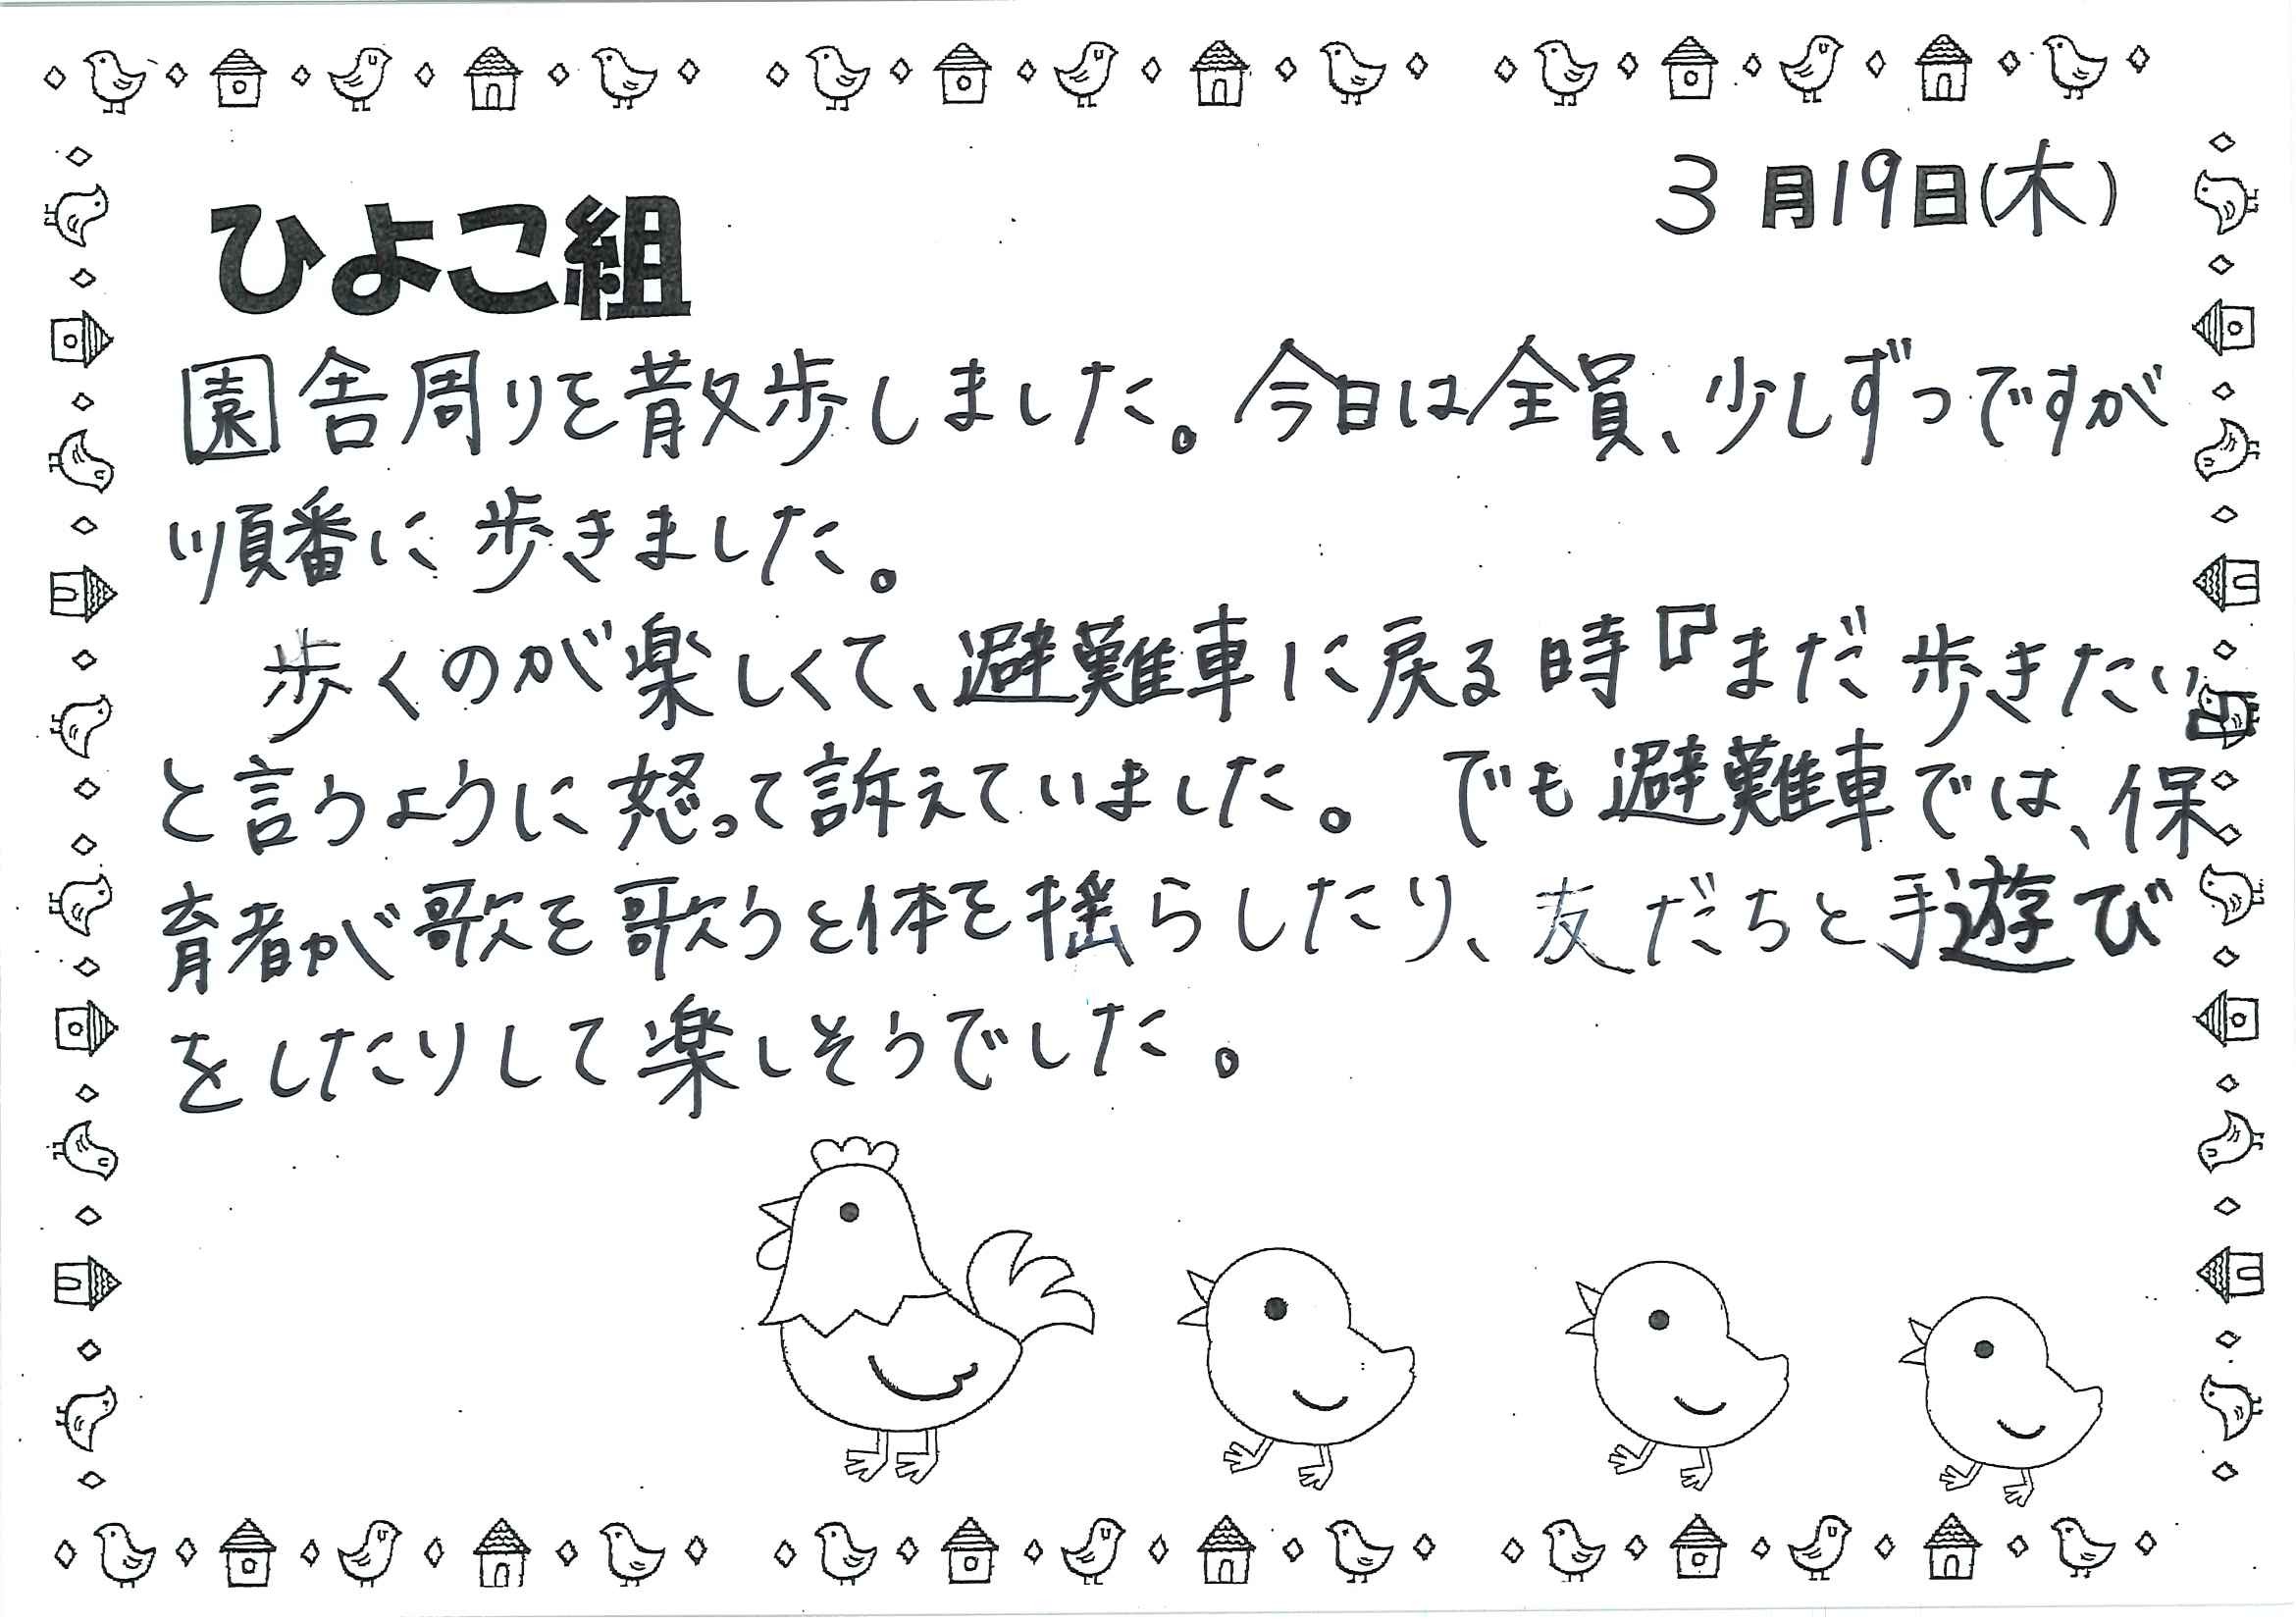 3月19日(木)
ひよこ組
園舎周りを散歩しました。今日は全員、少しずつですが
順番に歩きました。
歩くのが楽しくて、避難車に戻る時『まだ歩きたい』
と言うように怒って訴えていました。でも避難車では、保
育者が歌を歌うと体を揺らしたり、友だちと手遊び
をしたりして楽しそうでした。